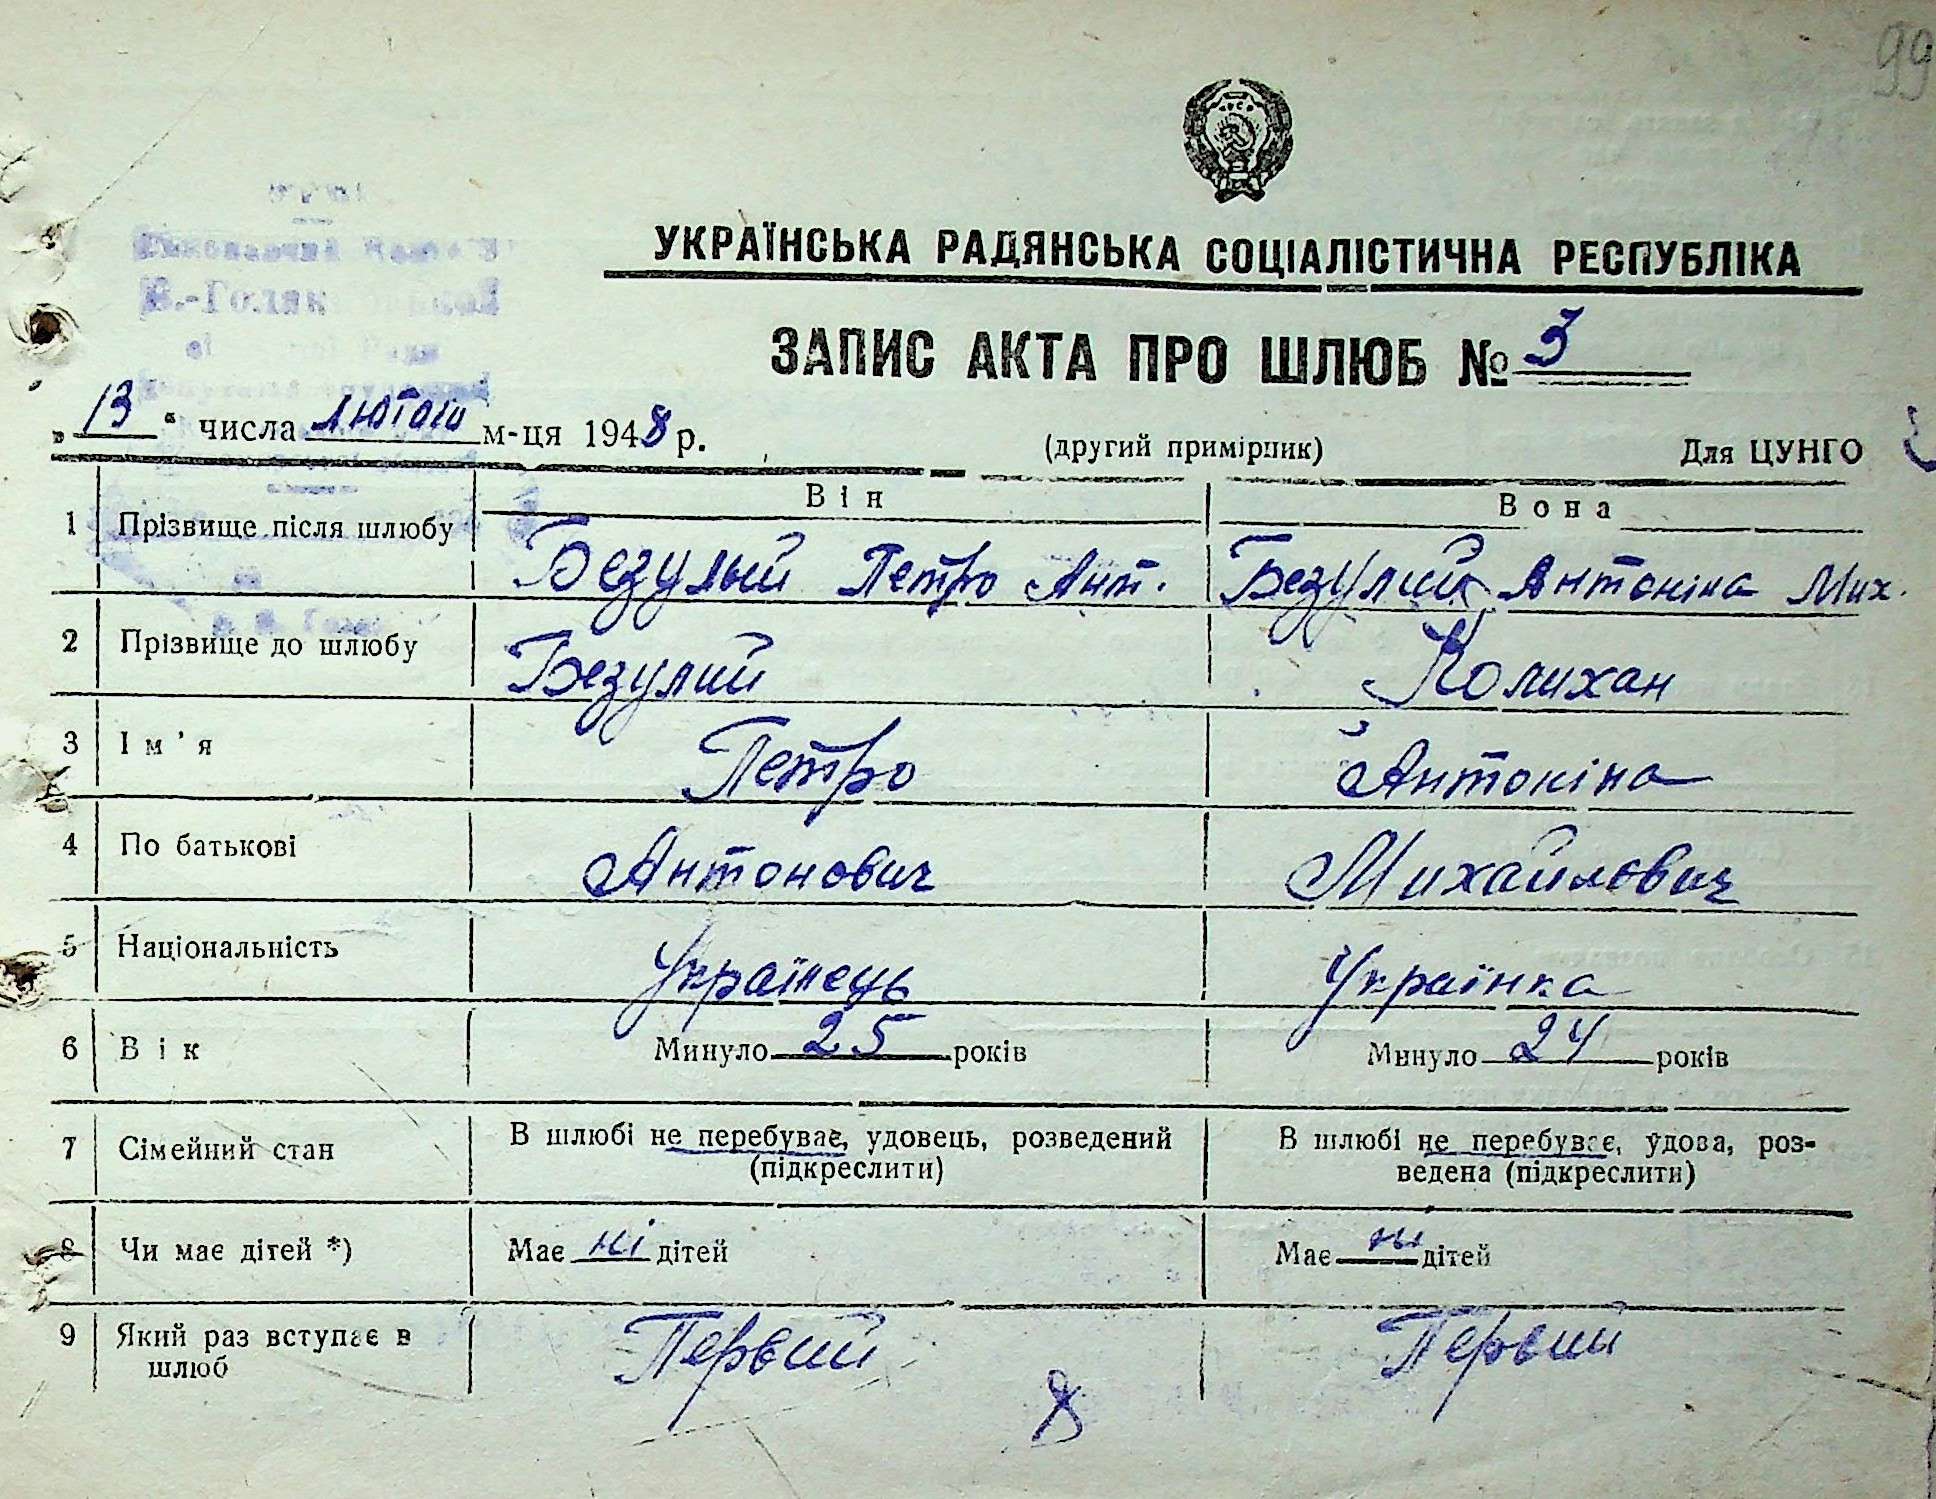 99
УКРАЇНСЬКА РАДЯНСЬКА СОЦІАЛІСТИЧНА РЕСПУБЛІКА
ЗАПИС АКТА ПРО ШЛЮБ № 3
„13“ числа лютого м-ця 1948 р. (другий примірник) Для ЦУНГО
Він Вона
1 Прізвище після шлюбу Безулый Петро Ант. Безулий Антоніна Мих.
2 Прізвище до шлюбу Безулий Полихан
3 Ім'я Петро Антоніна
4 По батькові Антонович Михайлович
5 Національність Українець Українка
6 Вік Минуло 25 років Минуло 24 років
7 Сімейний стан В шлюбі не перебуває, удовець, розведений В шлюбі не перебуває, удова, роз-
(підкреслити) ведена (підкреслити)
8 Чи має дітей *) Має ні дітей Має ни дітей
9 Який раз вступає в Первий Первий
шлюб